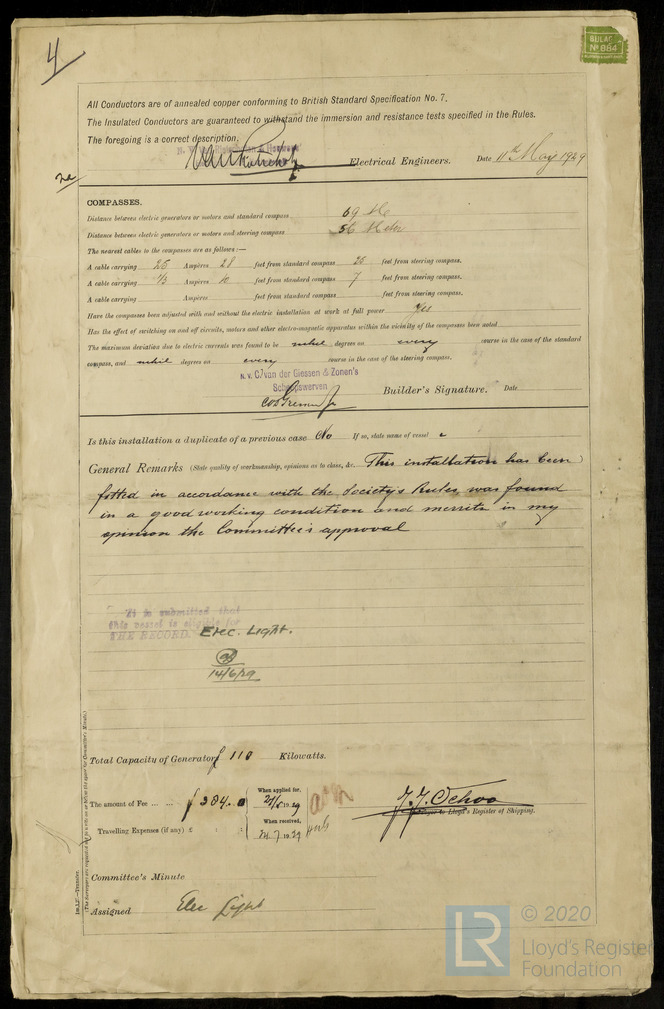 4
BULAC
No 884
All Conductors are of annealed copper conforming to British Standard Specification No. 7.
The Insulated Conductors are guaranteed to withstand the immersion and resistance tests specified in the Rules.
The foregoing is a correct description.
Electrical Engineers. Date 11th May 1929
COMPASSES.
Distance between electric generators or motors and standard compass 69
Distance between electric generators or motors and steering compass 56
The nearest cables to the compasses are as follows:—
A cable carrying 25 Ampères 28 feet from standard compass 26 feet from steering compass.
A cable carrying 1/2 Ampères 10 feet from standard compass 7 feet from steering compass.
A cable carrying Ampères feet from standard compass feet from steering compass.
Have the compasses been adjusted with and without the electric installation at work at full power Yes
Has the effect of switching on and off circuits, motors and other electro-magnetic apparatus within the vicinity of the compasses been noted
The maximum deviation due to electric currents was found to be degrees on every course in the case of the standard
compass, and degrees on every course in the case of the steering compass.
N.V. C. van der Giessen & Zonen's
Scheepswerven
Builder's Signature. Date
Is this installation a duplicate of a previous case No If so, state name of vessel
General Remarks (State quality of workmanship, opinions as to class, &c. This installation has been
fitted in accordance with the Society's Rules, was found
in a good working condition and merrits in my
opinion the Committee's approval
It is submitted that
this vessel is eligible for
THE RECORD. Elec. Light.
14/6/29
Total Capacity of Generators 110 Kilowatts.
The amount of Fee ... ... ƒ 384.0
When applied for,
19 29
Travelling Expenses (if any) £ : :
When received,
7 19 29
J. J. Ochoa
Surveyor to Lloyd's Register of Shipping.
Committee's Minute
Assigned Elec Light
Im.1,27.—Transfer.
(The Surveyors are requested not to write on or below the space for Committee's Minute.)
LR © 2020
Lloyd's Register
Foundation